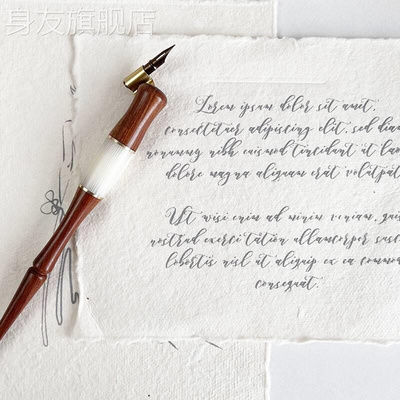 身友旗舰店
Lorem ipsum dolor sit amet,
consectetuer adipiscing elit, sed diam
nonummy nibh euismod tincidunt ut lao
dolore magna aliquam erat volutpat
Ut wisi enim ad minim veniam, quis
nostrud exerci tation ullamcorper susc
lobortis nisl ut aliquip ex ea commo
consequat.